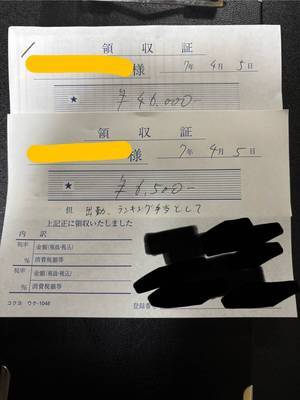 領収証
様 7年 4月 5日
★ ¥46,000-
領収証
様 7年 4月 5日
★ ¥6,500-
但 出勤、ランキング手当として
上記正に領収いたしました
内訳
税率 金額(税抜・税込)
% 消費税額等
税率 金額(税抜・税込)
% 消費税額等
コクヨ ウケ-1048
登録番号